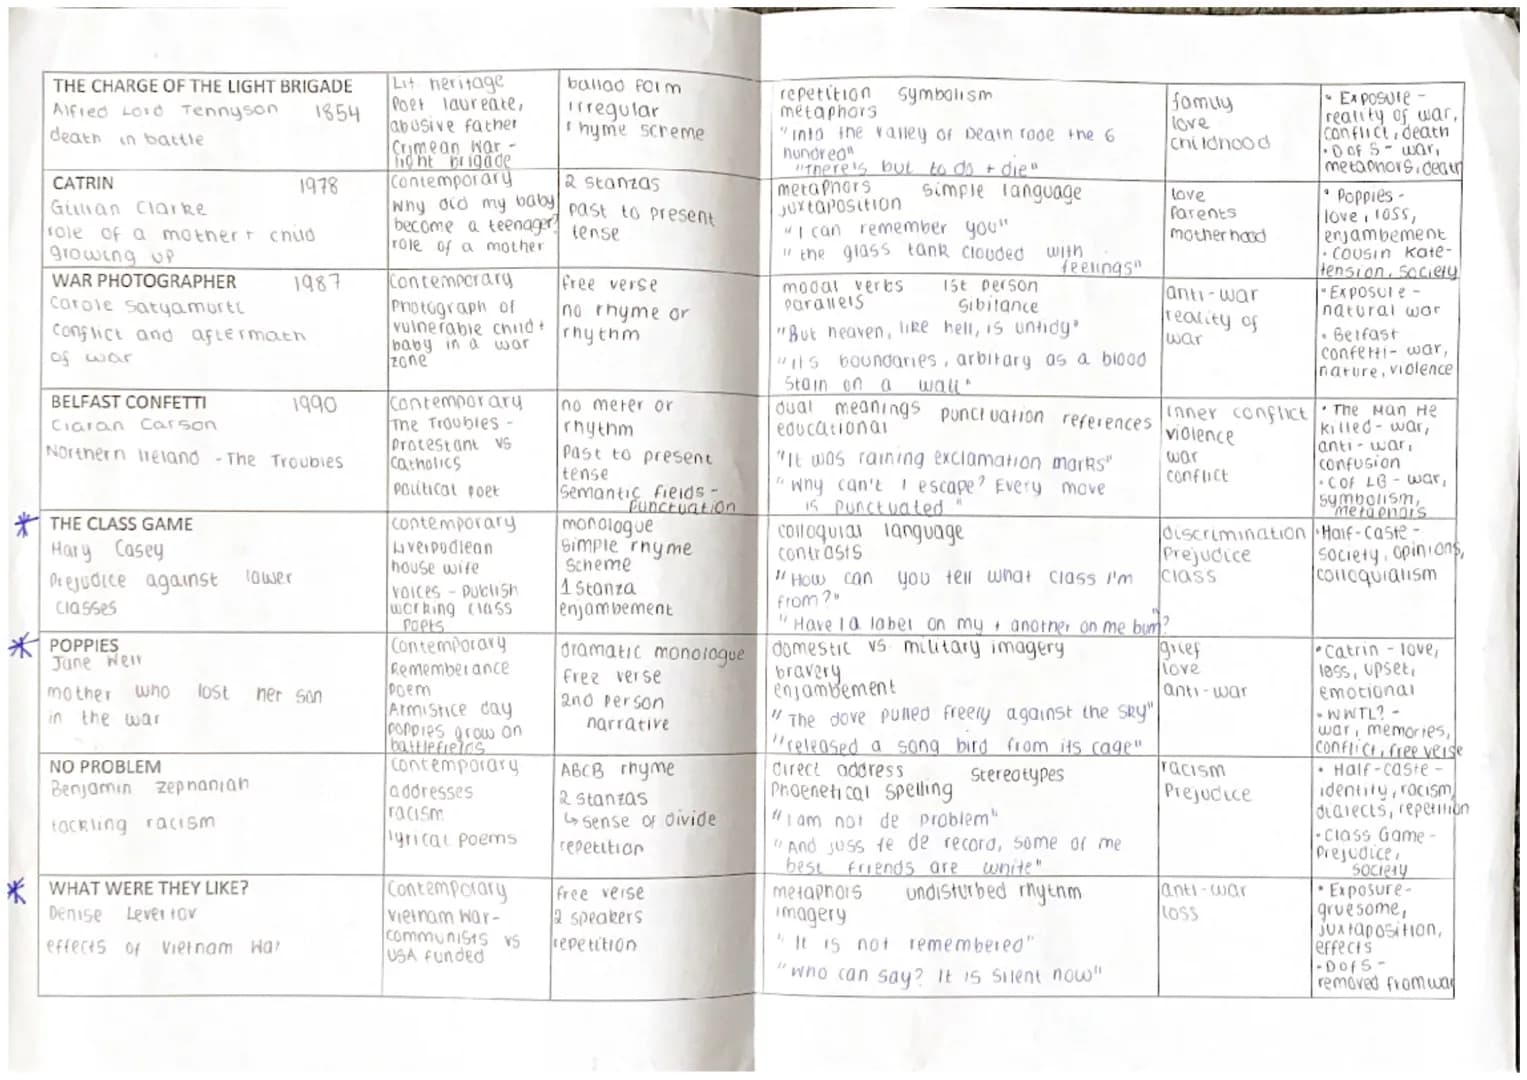 THE CHARGE OF THE LIGHT BRIGADE
Alfred Lord Tennyson 1854
death in battle
Lit heritage
Poet laureate,
abusive father
Crimean War -
light brigade
ballad form
irregular
rhyme scheme
repetition symbolism
metaphors
"Into the valley of Death rode the 6
hundred"
"There's but to do + die"
family
love
childhood
• Exposure -
reality of war,
conflict, death
• D of S - war,
metaphors, death
CATRIN 1978
Gillian Clarke
role of a mother + child
growing up
Contemporary
Why did my baby
become a teenager?
role of a mother
2 stanzas
past to present
tense
metaphors simple language
juxtaposition
"I can remember you"
"the glass tank clouded with
feelings"
love
Parents
motherhood
• Poppies -
love, loss,
enjambement
• Cousin Kate -
tension, society
WAR PHOTOGRAPHER 1987
Carole Satyamurti
Conflict and aftermath
of war
Contemporary
Photograph of
vulnerable child +
baby in a war
zone
free verse
no rhyme or
rhythm
modal verbs 1st person
parallels Sibilance
"But heaven, like hell, is untidy"
"its boundaries, arbitary as a blood
stain on a wall"
anti-war
reality of
war
• Exposure -
natural war
• Belfast
confetti - war,
nature, violence
BELFAST CONFETTI 1990
Ciaran Carson
Northern Ireland - The Troubles
Contemporary
The Troubles -
Protestant vs
Catholics
Political poet
no meter or
rhythm
Past to present
tense
Semantic fields -
Punctuation
dual meanings punctuation references
educational
"It was raining exclamation marks"
"Why can't I escape? Every move
is punctuated"
inner conflict
violence
war
conflict
• The Man He
Killed - war,
anti-war,
confusion
• C of LB - war,
symbolism,
metaphors
* THE CLASS GAME
Mary Casey
Prejudice against lower
classes
contemporary
Liverpudlean
house wife
voices - publish
working class
poets
monologue
Simple rhyme
scheme
1 Stanza
enjambement
colloquial language
contrasts
"How can you tell what class I'm
from?"
"Have I a label on my + another on me bum?
discrimination
Prejudice
class
• Half-caste -
society, opinions,
colloquialism
* POPPIES
Jane Weir
mother who lost her son
in the war
Contemporary
Rememberance
poem
Armistice day
poppies grow on
battlefields
dramatic monologue
free verse
2nd person
narrative
domestic vs military imagery
bravery
enjambement
"The dove pulled freely against the sky"
"released a song bird from its cage"
grief
love
anti-war
• Catrin - love,
loss, upset,
emotional
• WWTL? -
war, memories,
conflict, free verse
NO PROBLEM
Benjamin Zephaniah
tackling racism
Contemporary
addresses
racism
lyrical poems
ABCB rhyme
2 Stanzas
↳ sense of divide
repetition
direct address Stereotypes
Phoenetical spelling
"I am not de problem"
"And juss fe de record, some of me
best friends are white"
racism
Prejudice
• Half-caste -
identity, racism,
dialects, repetition
• Class Game -
Prejudice,
society
* WHAT WERE THEY LIKE?
Denise Levertov
effects of Vietnam War
Contemporary
Vietnam War -
communists vs
USA funded
free verse
2 speakers
repetition
metaphors undisturbed rhythm
imagery
"It is not remembered"
"Who can say? It is silent now"
anti-war
loss
• Exposure -
gruesome,
juxtaposition,
effects
• D of S -
removed from war